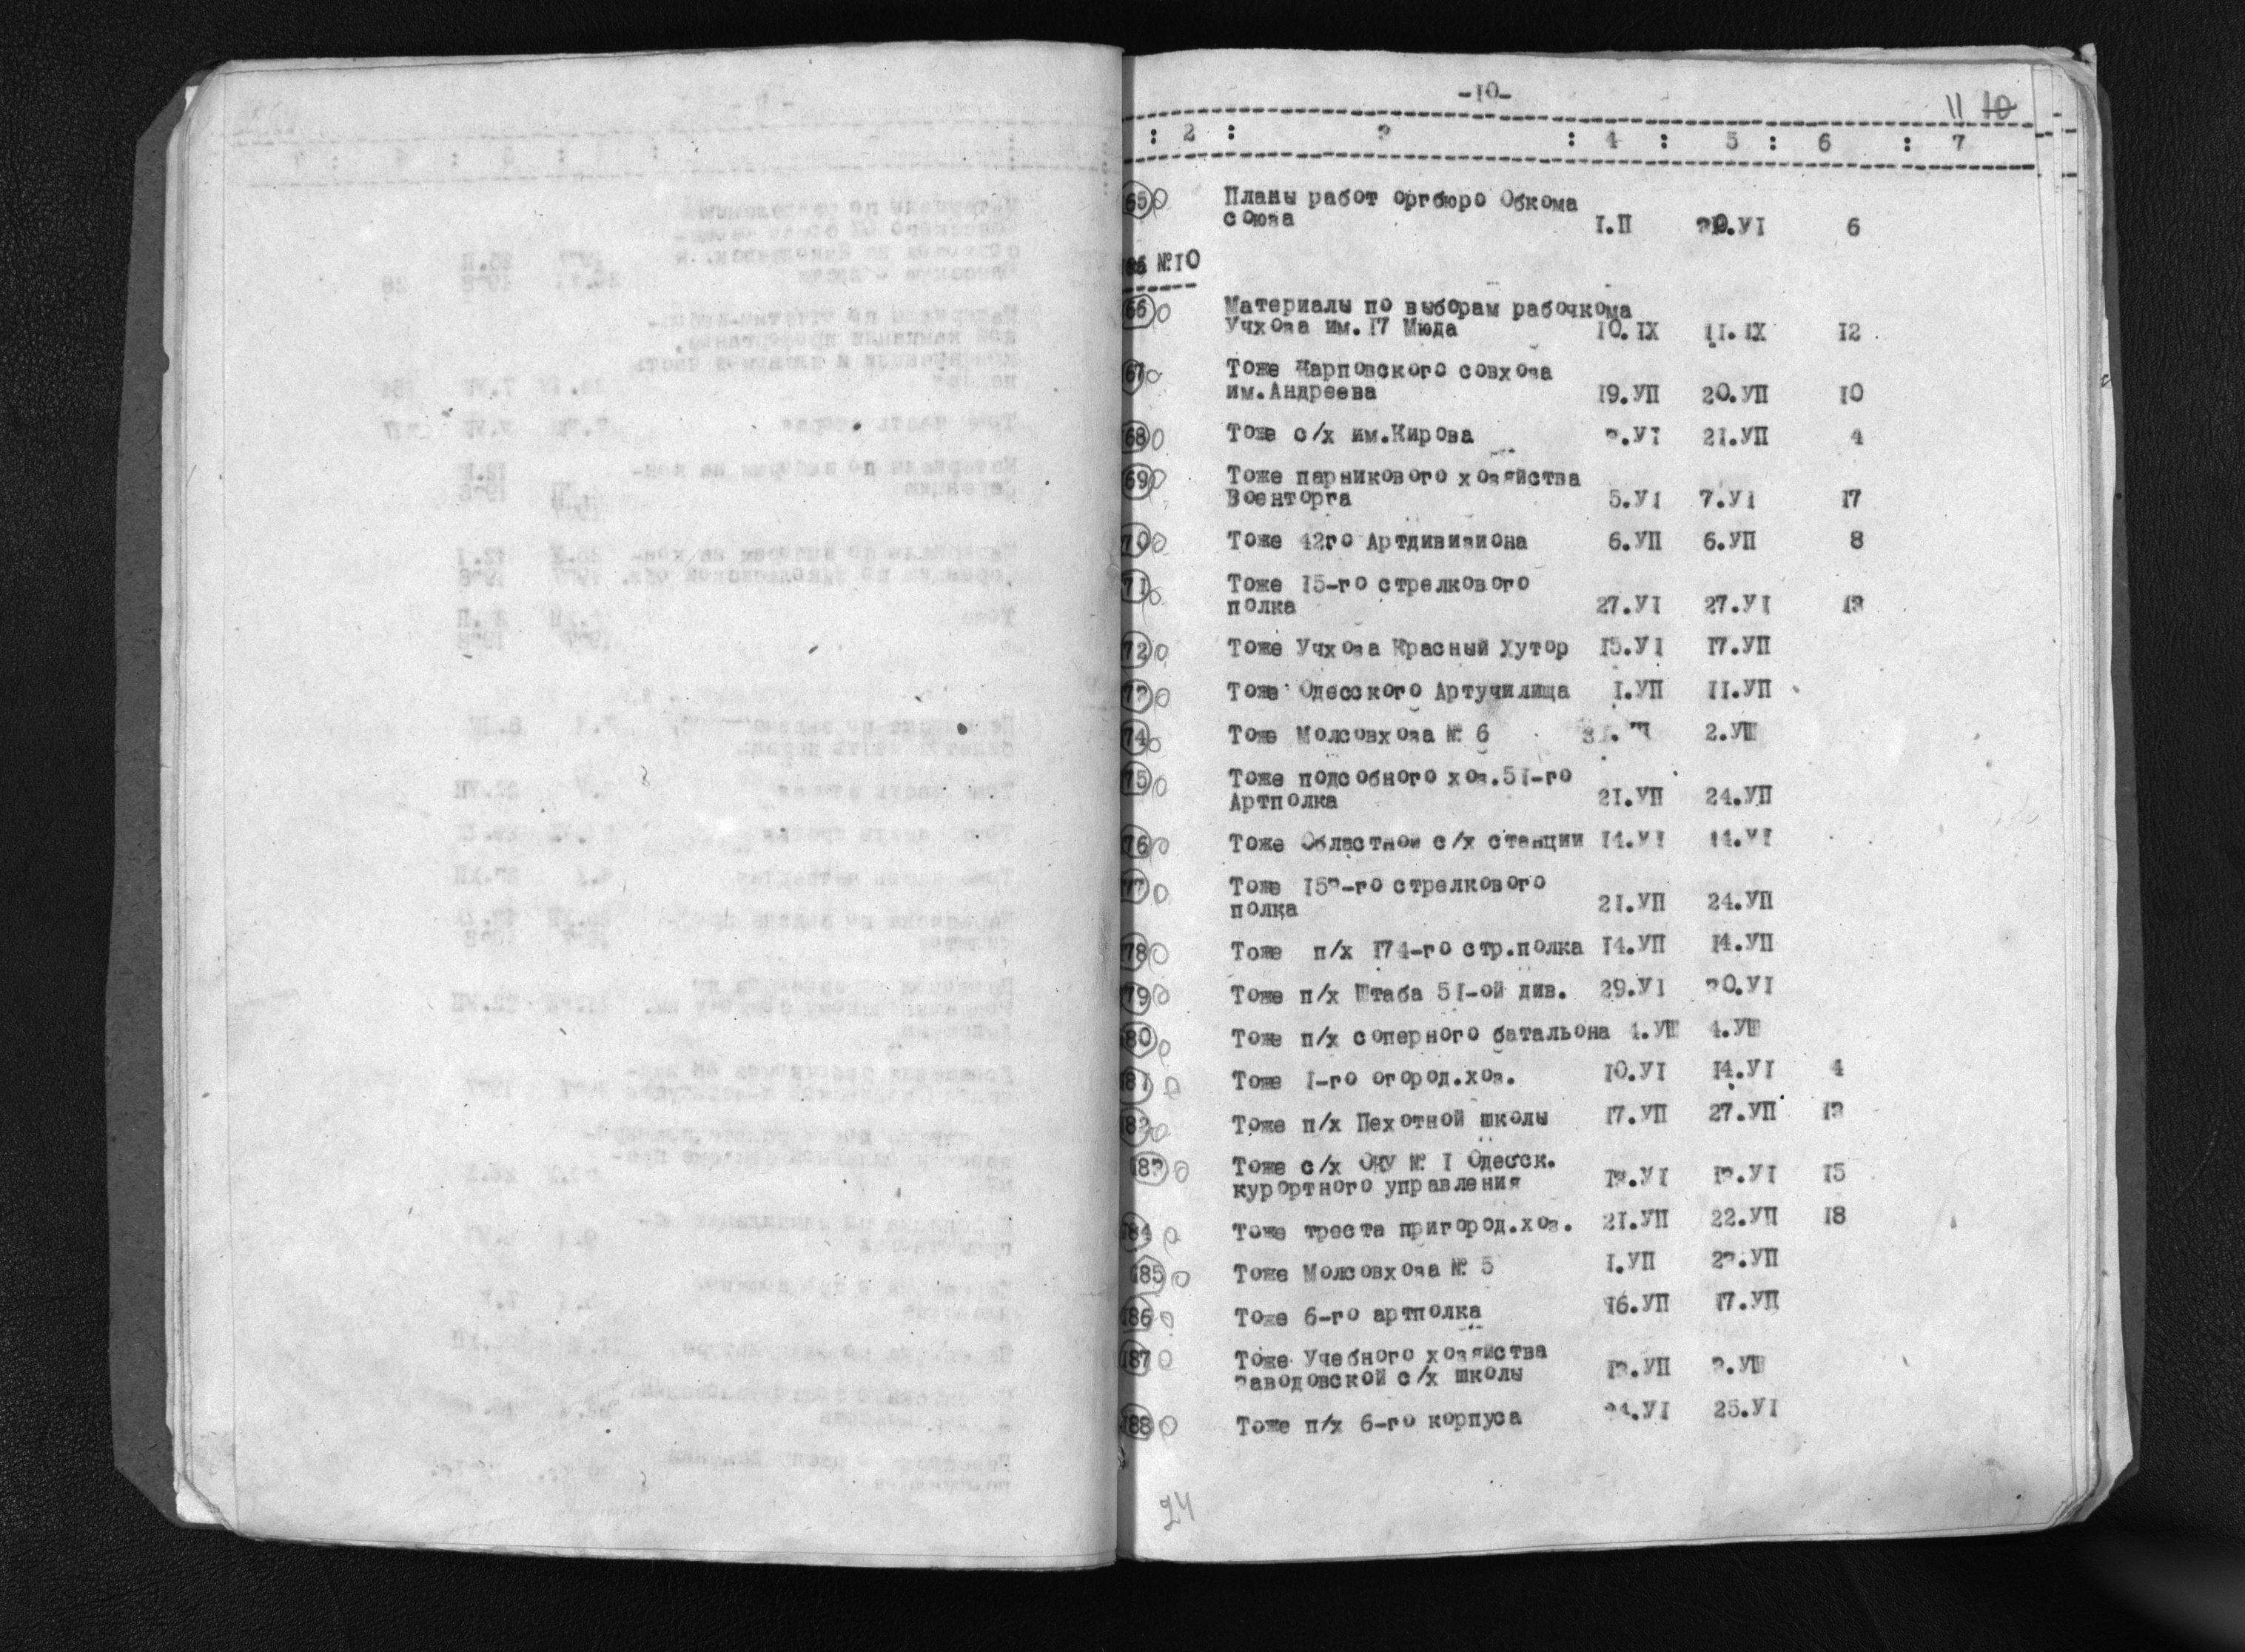 -10-
11 10
: 2 : 3 : 4 : 5 : 6 : 7
65 Планы работ оргбюро Обкома
союза 1.П 30.УІ 6
№10
66 Материалы по выборам рабочкома
Учхоза им.17 Мюда 10.IX 11.IX 12
67 Тоже Карповского совхоза
им.Андреева 19.УП 20.УП 10
68 Тоже с/х им.Кирова 21.УП 4
69 Тоже парникового хозяйства
Военторга 5.УІ 7.УІ 17
70 Тоже 42го Артдивизиона 6.УП 6.УП 8
71 Тоже 15-го стрелкового
полка 27.УІ 27.УІ 13
72 Тоже Учхоза Красный Хутор 15.УІ 17.УП
73 Тоже Одесского Артучилища 1.УП 11.УП
74 Тоже Молсовхоза № 6 2.УШ
75 Тоже подсобного хоз.51-го
Артполка 21.УП 24.УП
76 Тоже Областной с/х станции 14.УІ 14.УІ
77 Тоже 153-го стрелкового
полка 21.УП 24.УП
78 Тоже п/х 174-го стр.полка 14.УП 14.УП
79 Тоже п/х Штаба 51-ой див. 29.УІ 30.УІ
80 Тоже п/х соперного батальона 4.УШ 4.УШ
181 Тоже 1-го огород.хоз. 10.УІ 14.УІ 4
182 Тоже п/х Пехотной школы 17.УП 27.УП 13
183 Тоже с/х ОКУ № 1 Одесск.
курортного управления 13.УІ 13.УІ 15
184 Тоже треста пригород.хоз. 21.УП 22.УП 18
185 Тоже Молсовхоза № 5 1.УП 23.УП
186 Тоже 6-го артполка 16.УП 17.УП
187 Тоже Учебного хозяйства
Заводовской с/х школы 13.УП 3.УШ
188 Тоже п/х 6-го корпуса 24.УІ 25.УІ
24